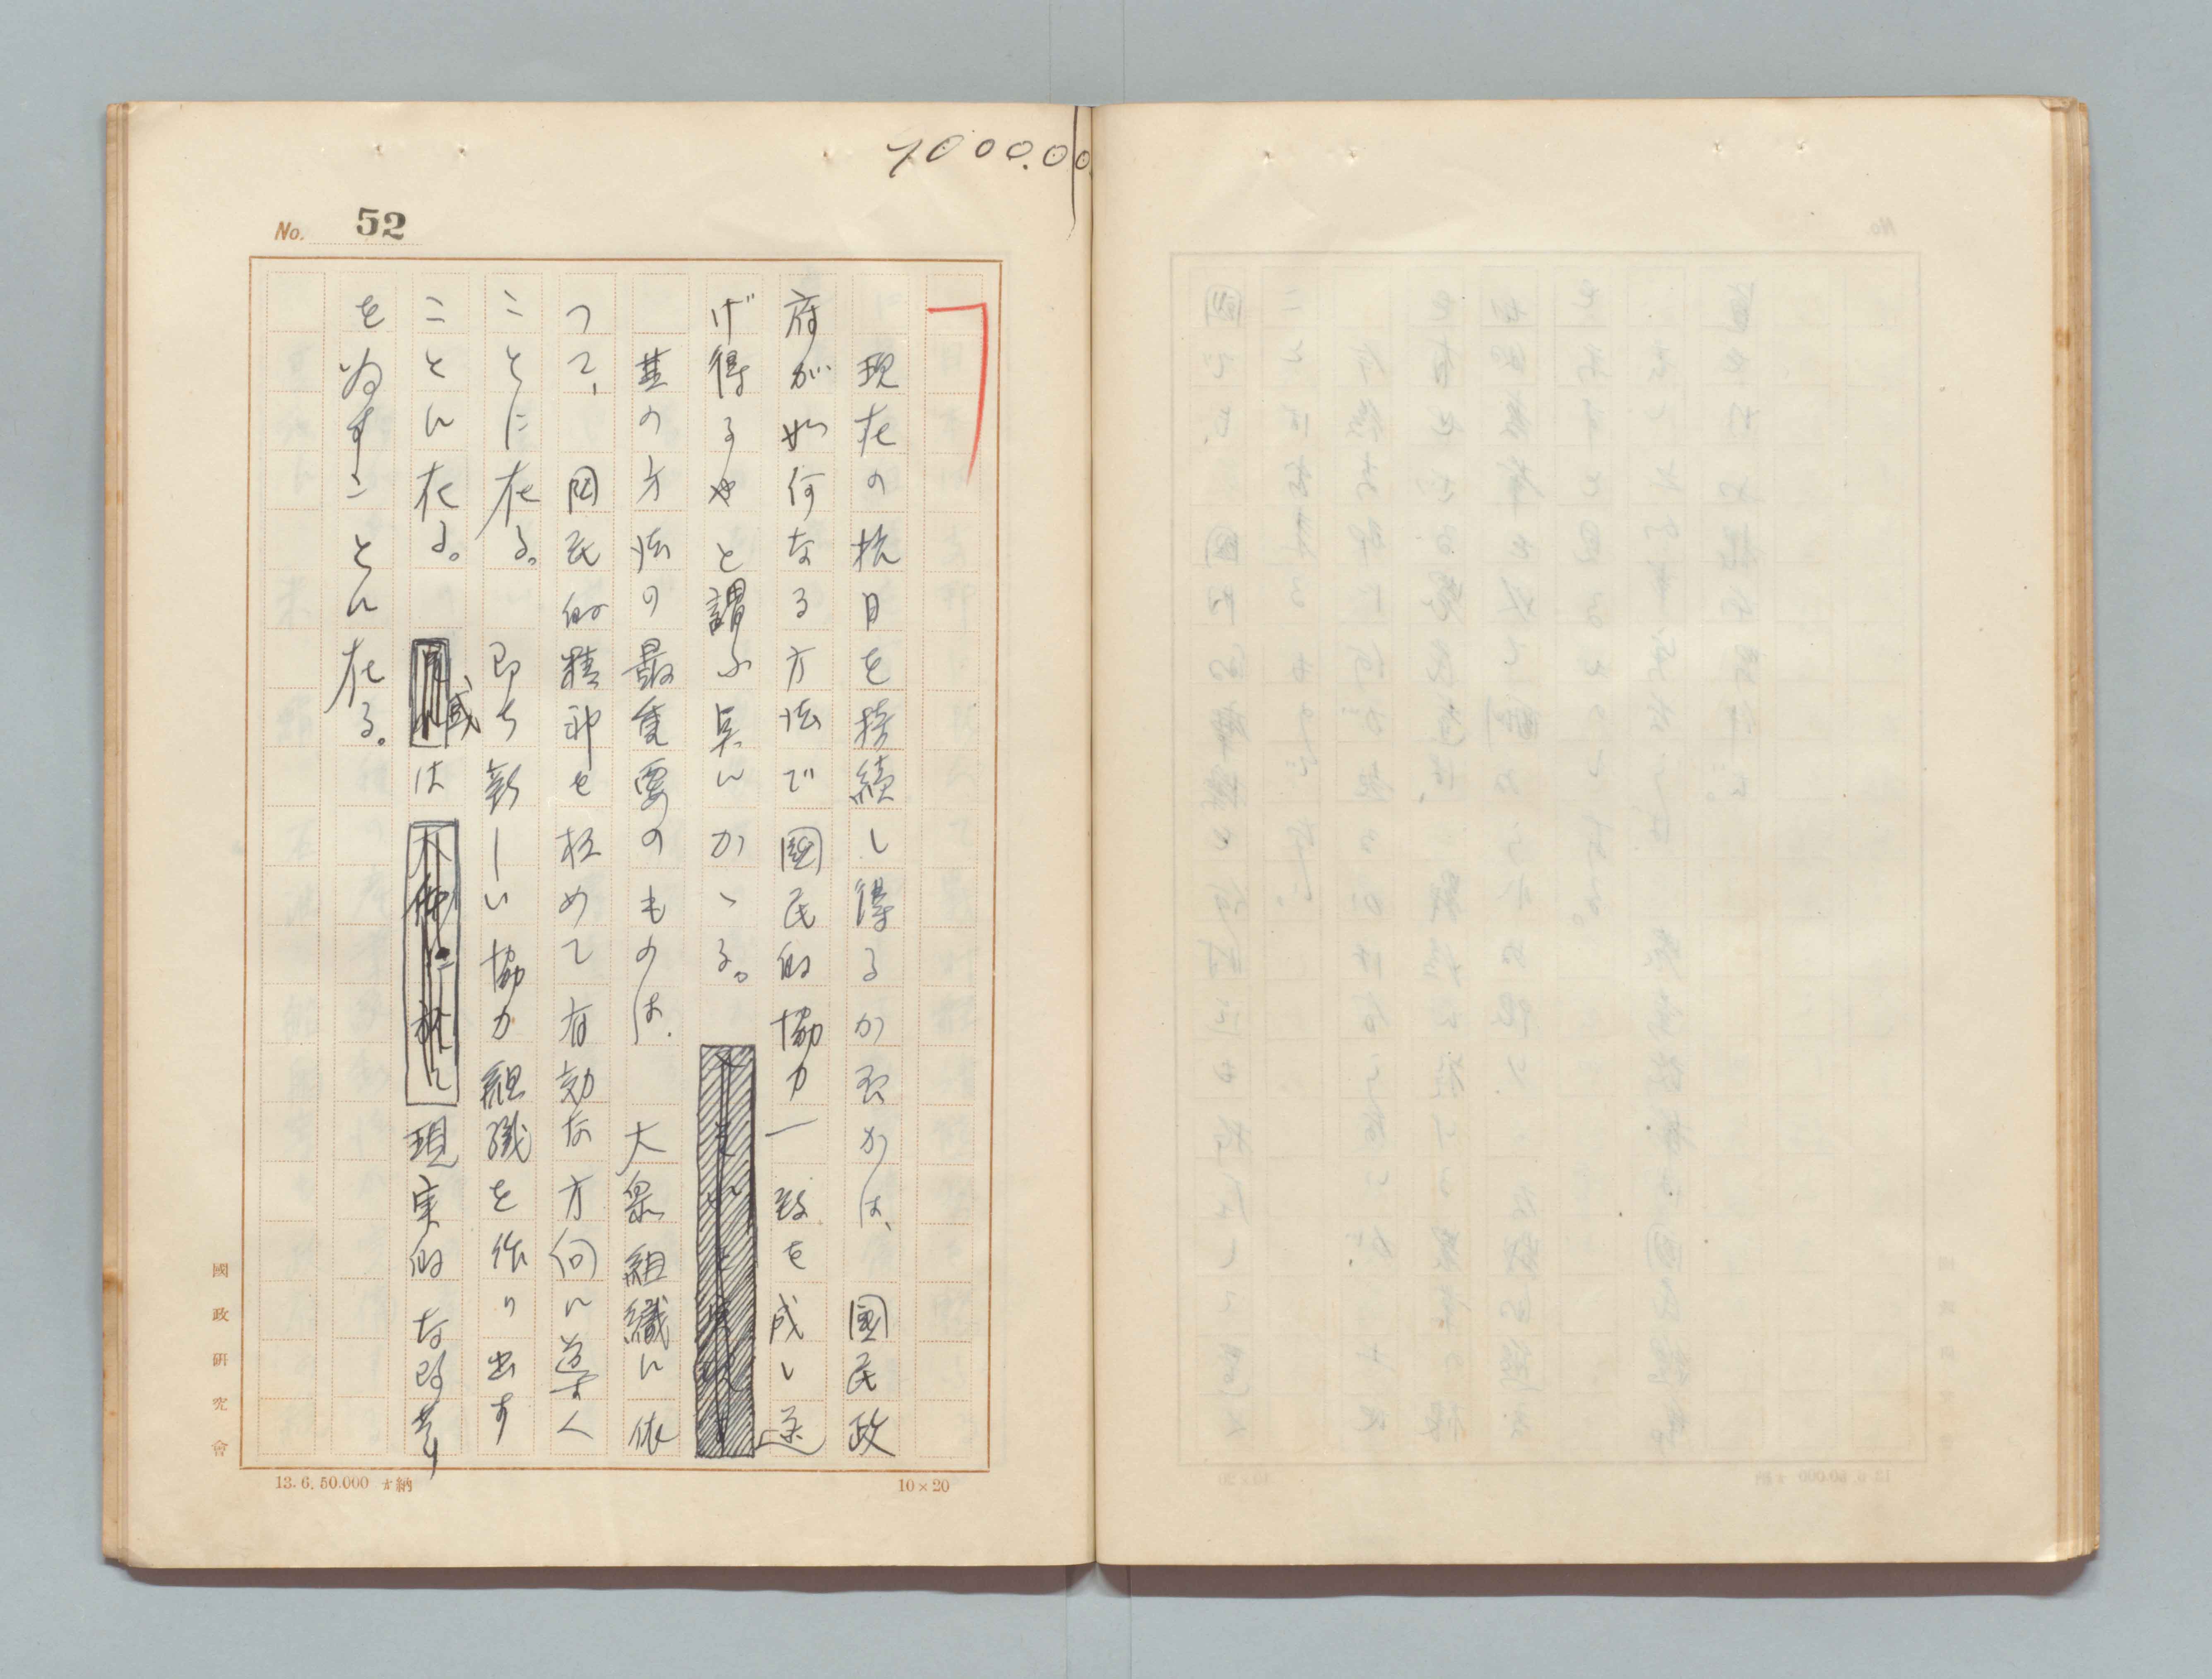 7000.00
No. 52
現在の抗日を持続し得るか否かは、國民政
府が如何なる方法で國民的協力一致を成し遂
げ得るやと謂ふ点にかゝる。
其の方法の最重要のものは、大衆組織に依
つて、国民的精神を極めて有効な方向に導く
ことに在る。即ち新しい協力組織を作り出す
ことに在る。或は現実的な改革
を為すことに在る。
國政研究會
13.6.50.000 納
10×20